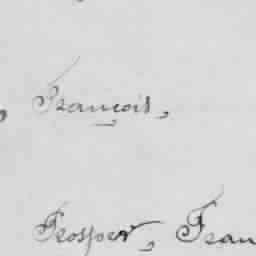 , François,
Prosper, Fran